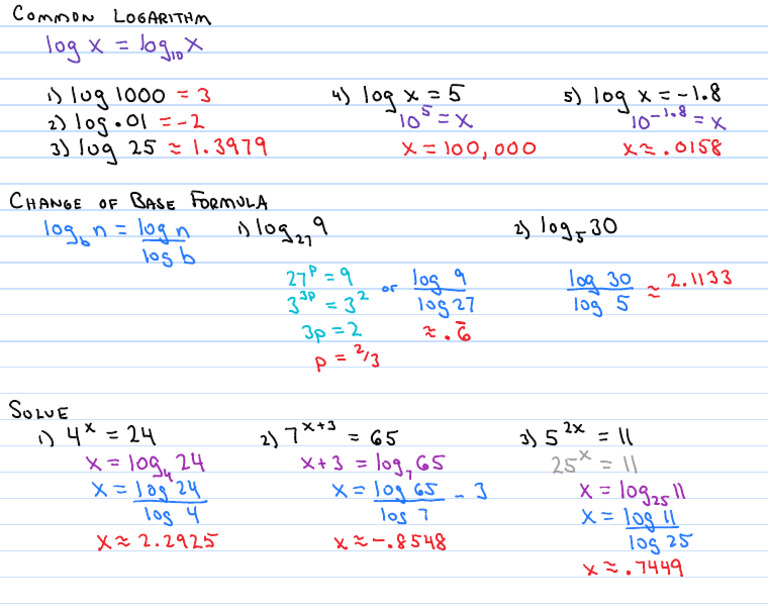 COMMON LOGARITHM
log x = log₁₀ x
1) log 1000 = 3
2) log .01 = -2
3) log 25 ≈ 1.3979
4) log x = 5
10⁵ = x
x = 100,000
5) log x = -1.8
10⁻¹·⁸ = x
x ≈ .0158
CHANGE OF BASE FORMULA
log_b n = log n / log b
1) log₂₇ 9
27ᵖ = 9
3³ᵖ = 3²
3p = 2
p = 2/3
or
log 9 / log 27
≈ .6̅
2) log₅ 30
log 30 / log 5 ≈ 2.1133
SOLVE
1) 4ˣ = 24
x = log₄ 24
x = log 24 / log 4
x ≈ 2.2925
2) 7ˣ⁺³ = 65
x+3 = log₇ 65
x = log 65 / log 7 - 3
x ≈ -.8548
3) 5²ˣ = 11
25ˣ = 11
x = log₂₅ 11
x = log 11 / log 25
x ≈ .7449